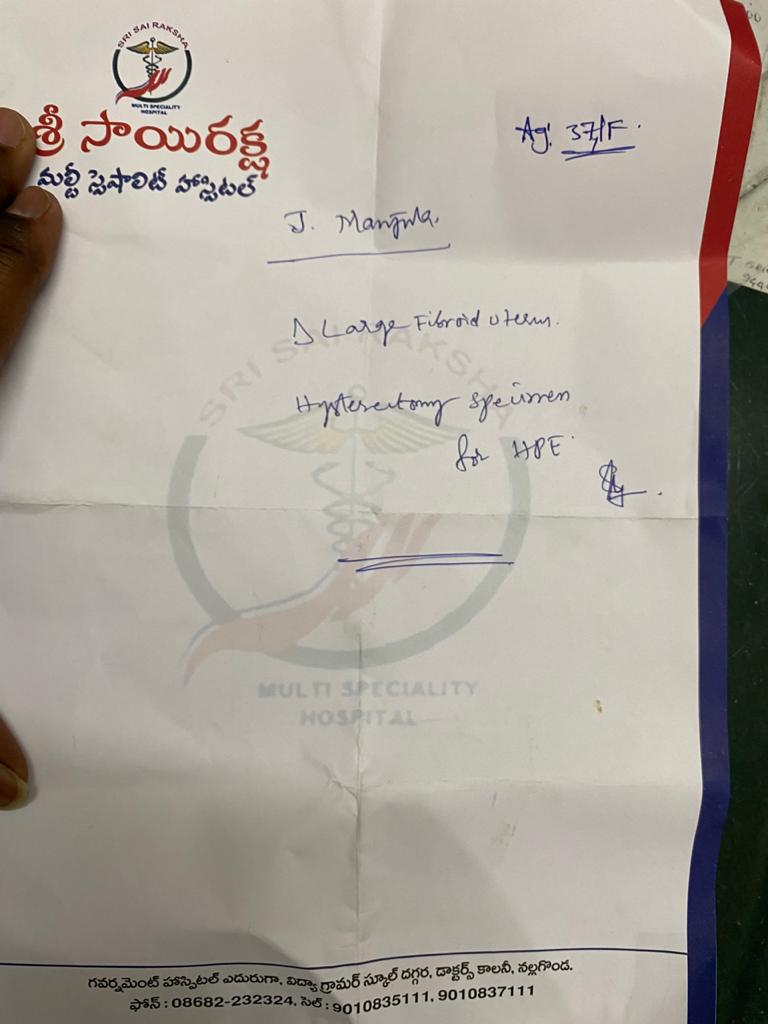 SRI SAI RAKSHA
MULTI SPECIALITY
HOSPITAL
శ్రీ సాయిరక్ష
మల్టీ స్పెషాలిటీ హాస్పిటల్
Ag: 37/F.
J. Manjula.
Δ Large Fibroid uterus.
SRI SAI RAKSHA
Hysterectomy specimen
for HPE.
MULTI SPECIALITY
HOSPITAL
గవర్నమెంట్ హాస్పిటల్ ఎదురుగా, విద్యా గ్రామర్ స్కూల్ దగ్గర, డాక్టర్స్ కాలనీ, నల్లగొండ.
ఫోన్ : 08682-232324, సెల్ : 9010835111, 9010837111